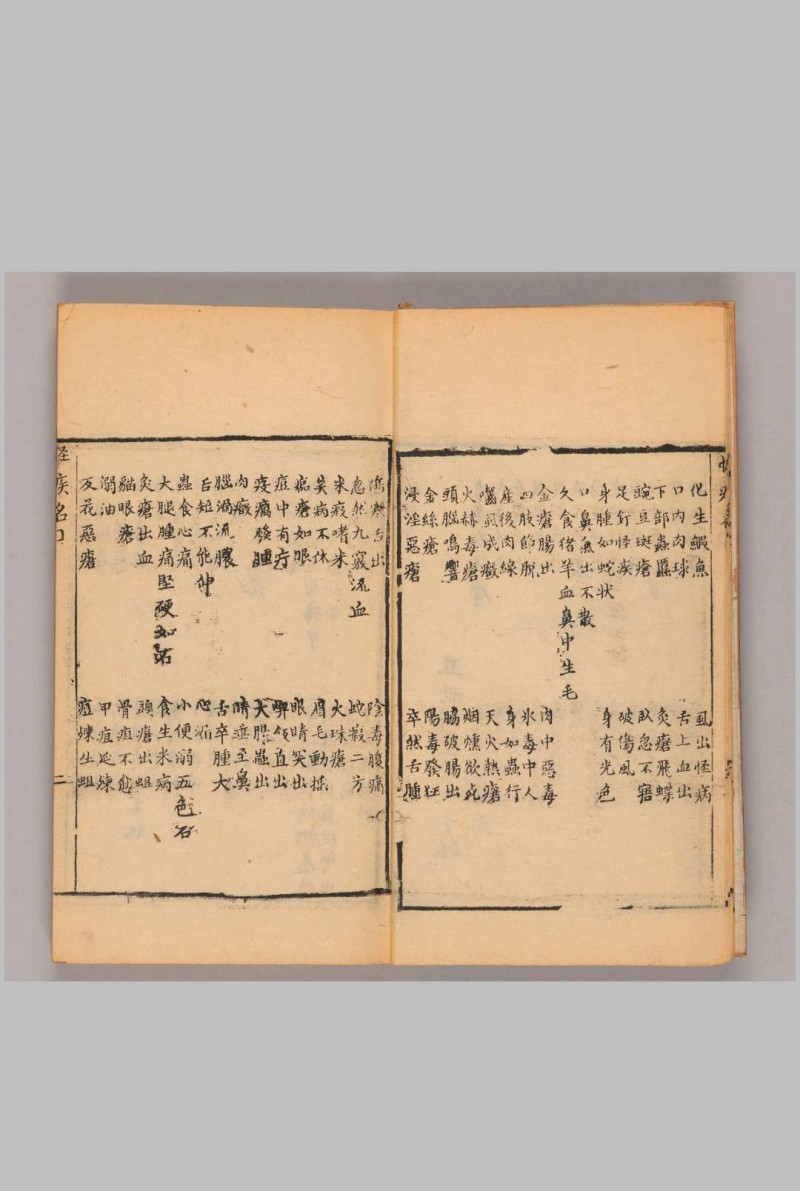 化生蝦魚　虱出怪病
口内肉毬　舌上血出
下部蟲䘌　灸瘡飛蝶
豌豆斑瘡　臥忽不寤
足釘怪疾　破傷風
身腫如蛇狀　身有光色
口鼻魚出不散
久食猪羊血鼻中生毛
金瘡腸出　肉中惡毒
四肢節脫　氷毒中人
産後肉線　身如蟲行
囓虱成癥　天火熱瘡
火赫毒瘡　烟燻欲死
頭腦鳴響　脇破腸出
金絲瘡　陽毒發狂
浸淫惡瘡　卒然舌腫
舌出　陰毒腹痛
忽然九竅流血　蛇瘕二方
米疫嗜米　火珠瘡
笑病不休　眉毛動搖
瘡如眼　眼睛突出
疽中有疔　直出
疫癘發腫　大腸蟲出
肉癥　睛垂至鼻
腦瀉流膿　舌卒腫大
舌短不能伸　心
蟲食心痛　小便溺五色石
大腿腫痛堅硬如石　食生米病
灸瘡出血　頭瘡出蛆
貓眼瘡　骨疽不愈
溺油　甲疽延爛
反花惡瘡　痘爛生蛆
疾名　二